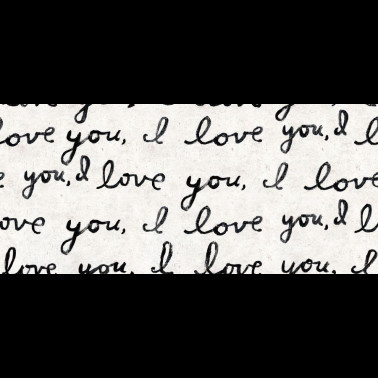 love you, I
love you, I love you, I l
you, I love you, I love
ove you, I love you, I l
love you, I love you, I